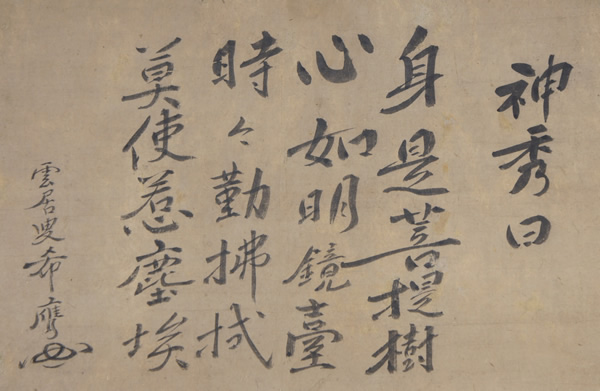 神秀曰
身是菩提樹
心如明鏡臺
時々勤拂拭
莫使惹塵埃
雲居叟希膺